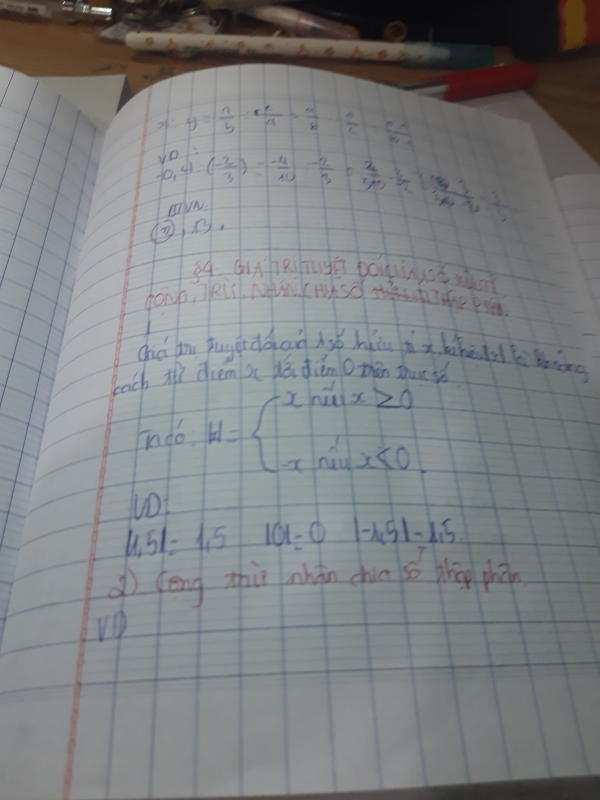 x : y =
VD :
-0,4 : (-2/3) = -4/10 · -2/3 =
BTVN.
§4 GIÁ TRỊ TUYỆT ĐỐI CỦA SỐ HỮU TỈ
CỘNG, TRỪ, NHÂN, CHIA SỐ THẬP PHÂN
Giá trị tuyệt đối của 1 số hữu tỉ x kí hiệu |x| là khoảng
cách từ điểm x tới điểm 0 trên trục số
x nếu x ≥ 0
Ta có: |x| =
-x nếu x < 0
VD:
|1,5| = 1,5 |0| = 0 |-1,5| = 1,5.
2) Cộng trừ nhân chia số thập phân
VD